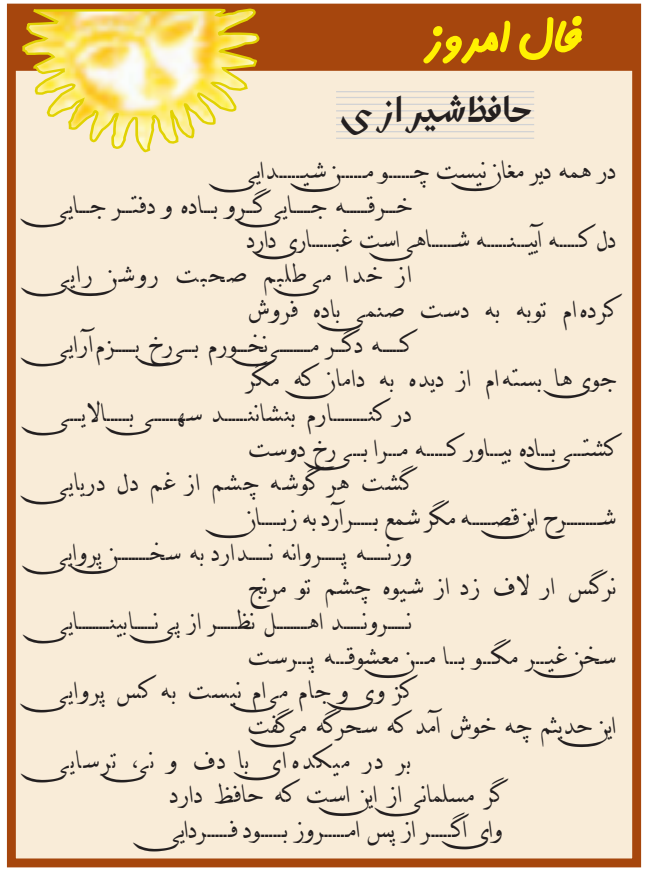 فال امروز
حافظ شیرازی
در همه دیر مغان نیست چو من شیدایی
خرقه جایی گرو باده و دفتر جایی
دل که آیینه شاهی است غباری دارد
از خدا می‌طلبم صحبت روشن رایی
کرده‌ام توبه به دست صنمی باده فروش
که دگر می نخورم بی رخ بزم آرایی
جوی ها بسته‌ام از دیده به دامان که مگر
در کنارم بنشانند سهی بالایی
کشتی باده بیاور که مرا بی رخ دوست
گشت هر گوشه چشم از غم دل دریایی
شرح این قصه مگر شمع برآرد به زبان
ورنه پروانه ندارد به سخن پروایی
نرگس ار لاف زد از شیوه چشم تو مرنج
نروند اهل نظر از پی نابینایی
سخن غیر مگو با من معشوقه پرست
کز وی و جام می‌ام نیست به کس پروایی
این حدیثم چه خوش آمد که سحرگه می‌گفت
بر در میکده‌ای با دف و نی، ترسایی
گر مسلمانی از این است که حافظ دارد
وای اگر از پس امروز بود فردایی